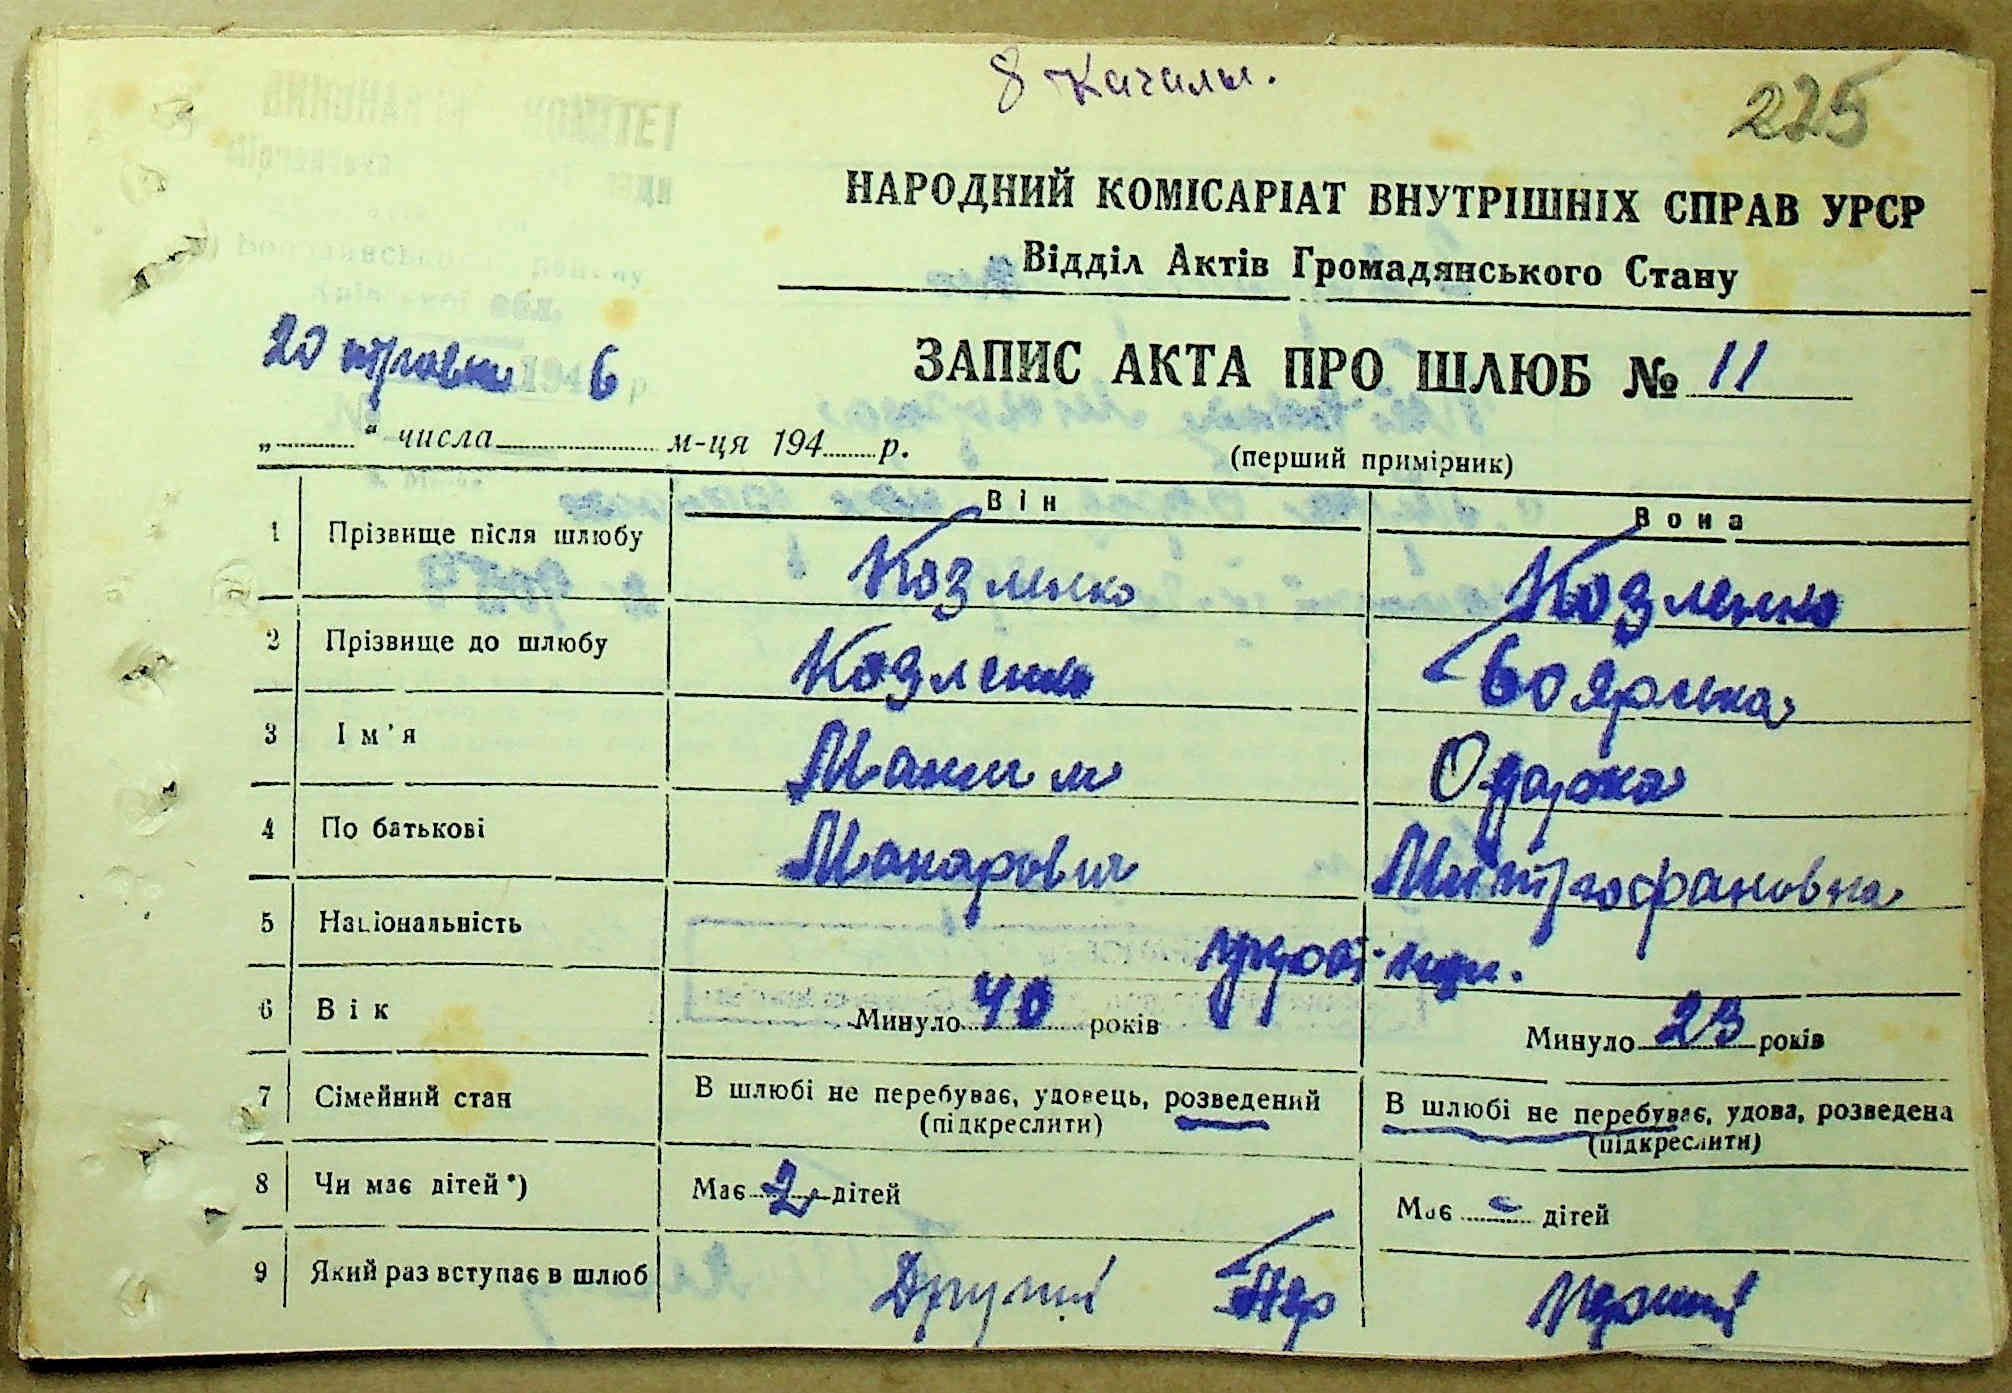 8 Качали.
225
НАРОДНИЙ КОМІСАРІАТ ВНУТРІШНІХ СПРАВ УРСР
Відділ Актів Громадянського Стану
20 травня 1946 р
ЗАПИС АКТА ПРО ШЛЮБ № 11
„ “ числа м-ця 194 р.
(перший примірник)
Він Вона
1 Прізвище після шлюбу Козленко Козленко
2 Прізвище до шлюбу Козленко Боярська
3 Ім'я Максим Одарка
4 По батькові Макарович Митрофановна
5 Національність
6 Вік Минуло 40 років Минуло 23 років
7 Сімейний стан В шлюбі не перебуває, удовець, розведений (підкреслити) В шлюбі не перебуває, удова, розведена (підкреслити)
8 Чи має дітей*) Має 2 дітей Має - дітей
9 Який раз вступає в шлюб Другий Пер Перший